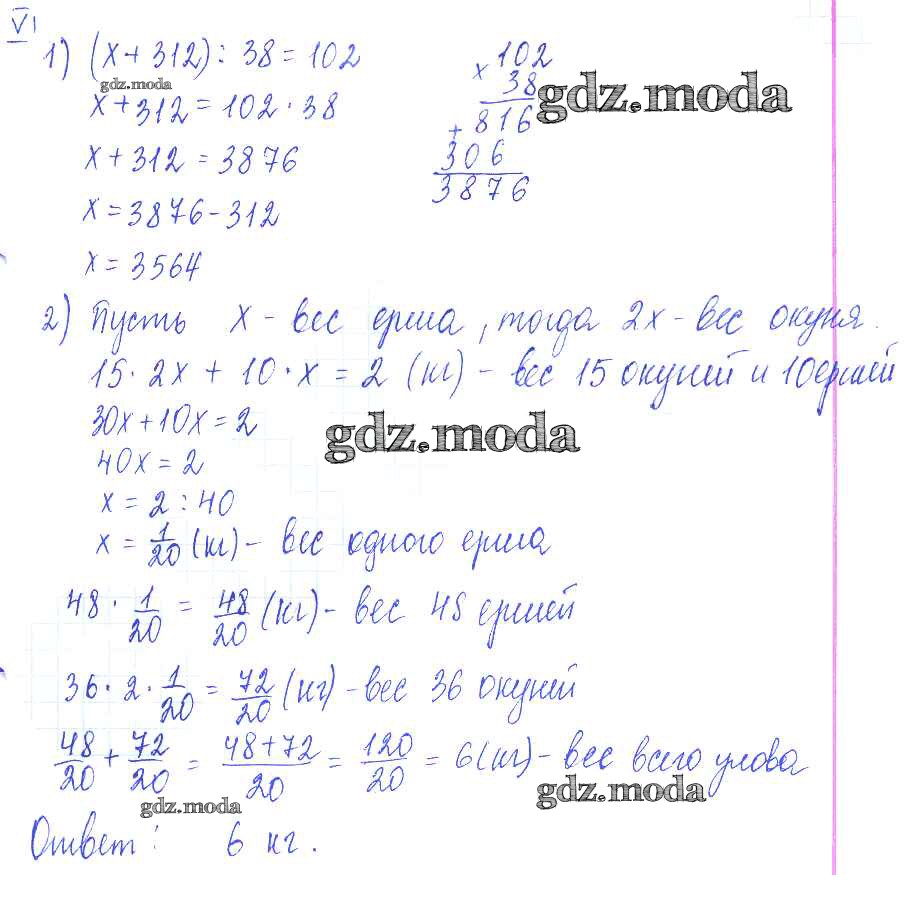 VI
1) (x + 312) : 38 = 102
gdz.moda
x + 312 = 102 · 38
x + 312 = 3876
x = 3876 - 312
x = 3564
102
x 38
gdz.moda
+ 816
306
3876
2) Пусть x - вес ерша, тогда 2x - вес окуня.
15 · 2x + 10 · x = 2 (кг) - вес 15 окуней и 10 ершей
30x + 10x = 2
gdz.moda
40x = 2
x = 2 : 40
x = 1/20 (кг) - вес одного ерша
48 · 1/20 = 48/20 (кг) - вес 48 ершей
36 · 2 · 1/20 = 72/20 (кг) - вес 36 окуней
48/20 + 72/20 = 48+72/20 = 120/20 = 6 (кг) - вес всего улова
gdz.moda
gdz.moda
Ответ: 6 кг.